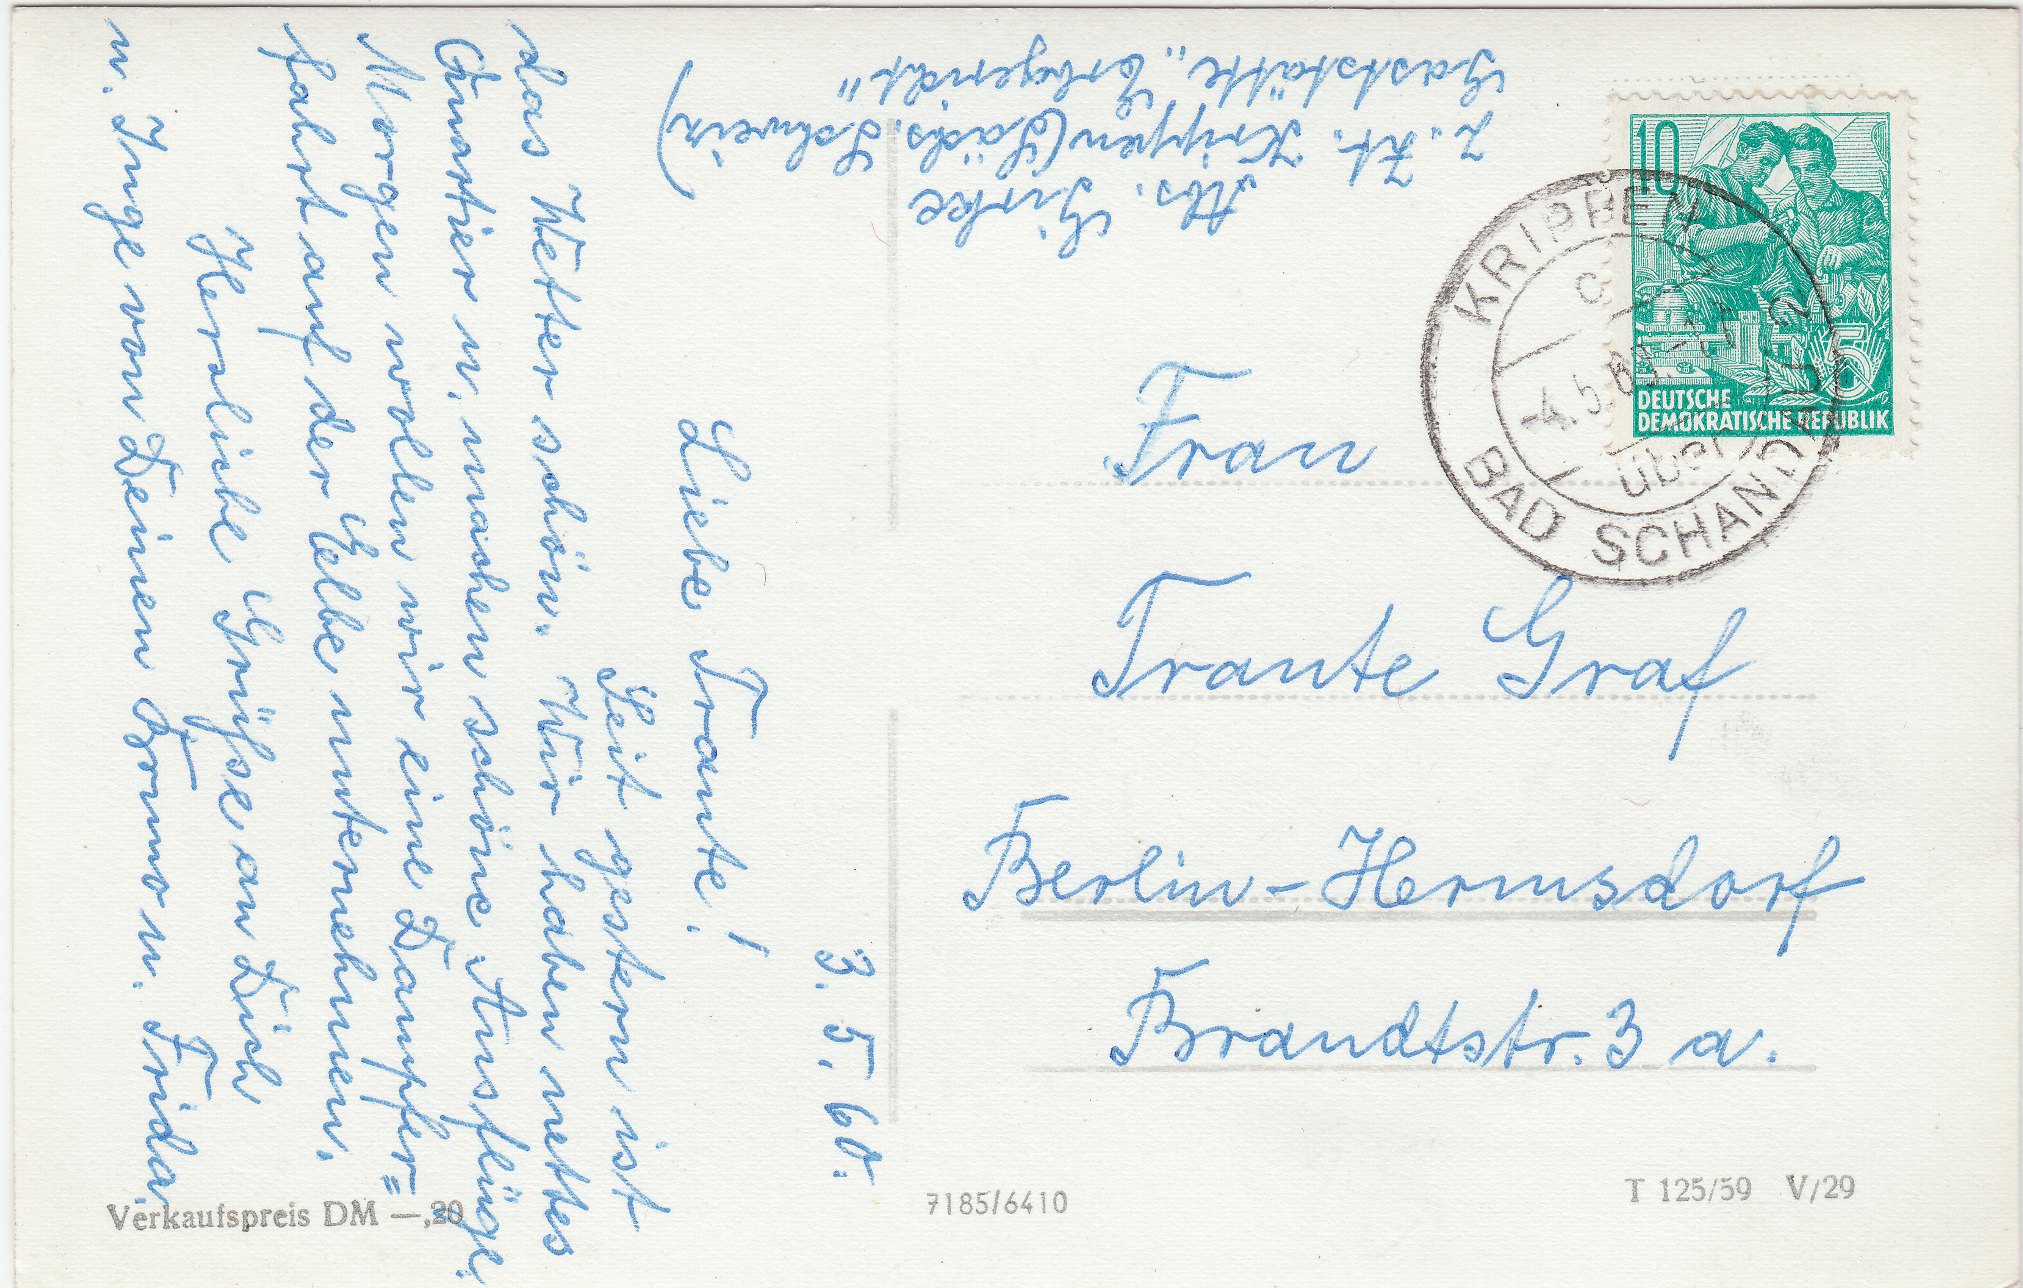 3. 5. 60.
Liebe Traute!
Seit gestern ist
das Wetter schön. Wir haben nettes
Quartier u. machen schöne Ausflüge.
Morgen wollen wir eine Dampfer=
fahrt auf der Elbe unternehmen.
Herzliche Grüße an Dich
u. Inge von Deinen Bruno u. Frida.
Abs. Girke
z. Zt. Krippen (Sächs. Schweiz)
Gaststätte „Erbgericht"
10
DEUTSCHE
DEMOKRATISCHE REPUBLIK
5
KRIPPEN
über
BAD SCHANDAU 2
-4.5.60.
Frau
Traute Graf
Berlin-Hermsdorf
Brandtstr. 3 a.
Verkaufspreis DM —,20
7185/6410
T 125/59 V/29